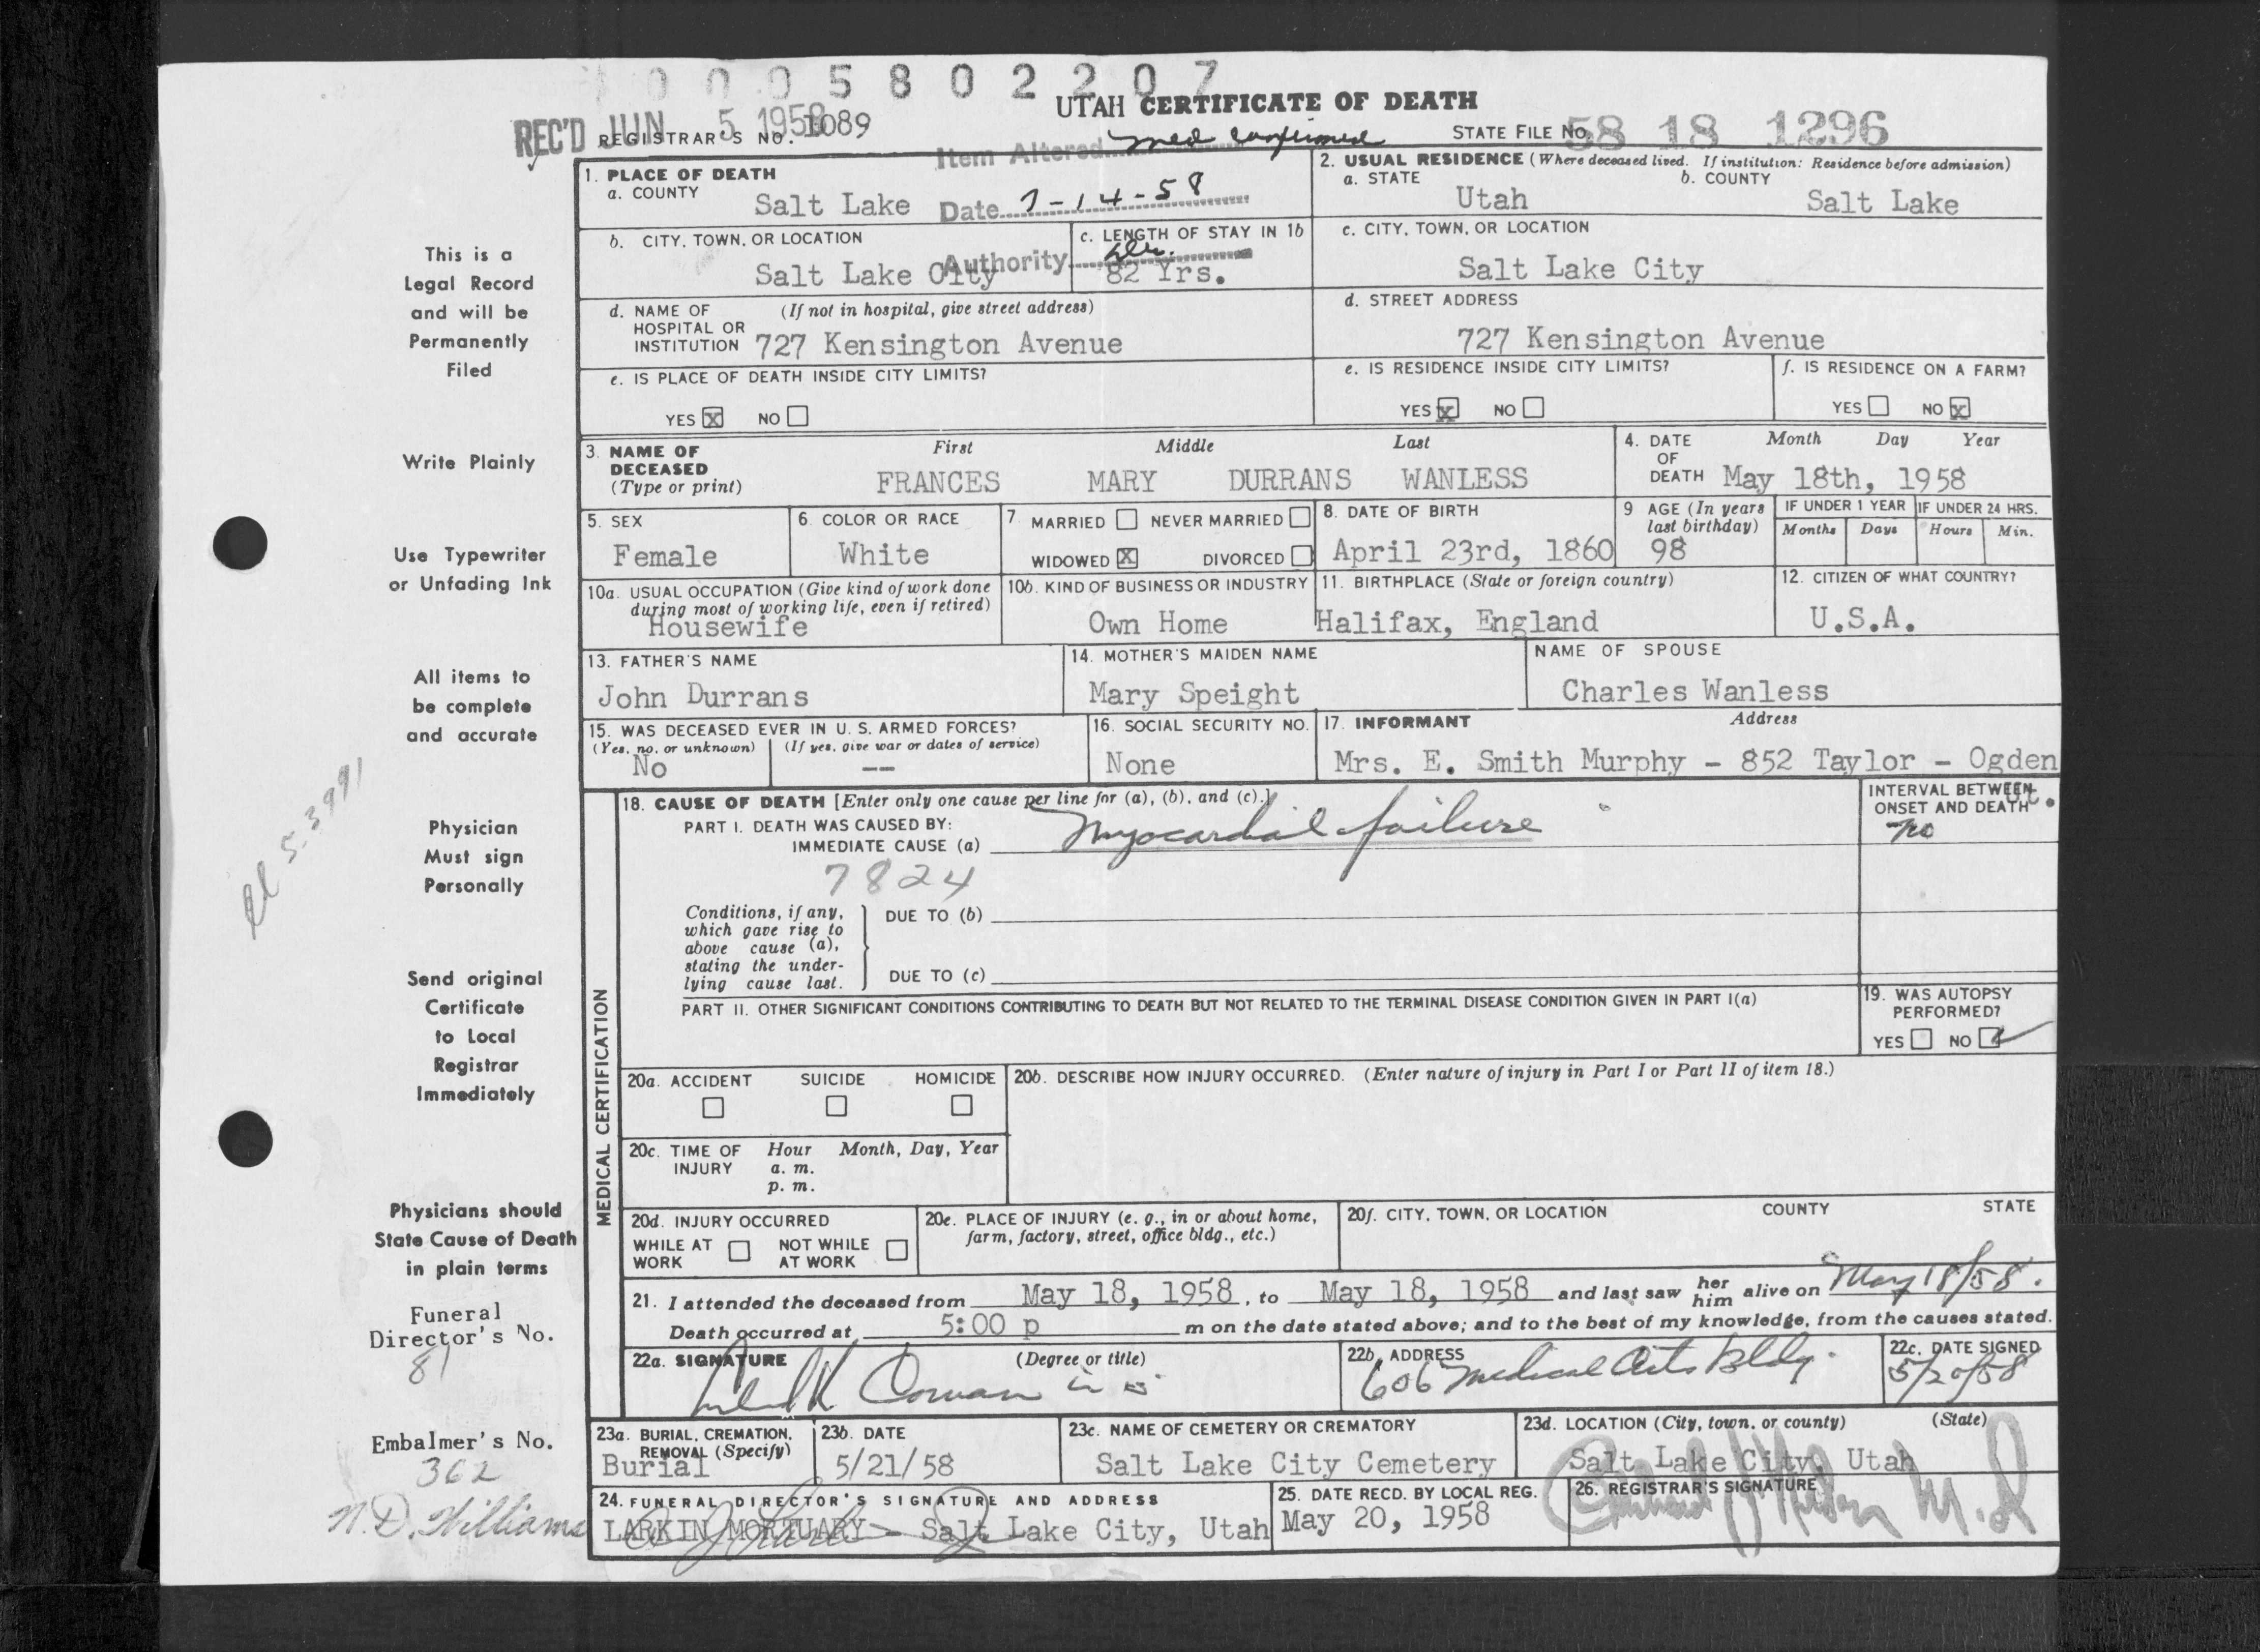 0 0 0 5 8 0 2 2 0 7
UTAH CERTIFICATE OF DEATH
REC'D JUN 5 1958
REGISTRAR'S NO. 1089
STATE FILE NO. 58 18 1296
Item Altered med confirmed
Date 7-14-58
Authority
1. PLACE OF DEATH
a. COUNTY
Salt Lake
2. USUAL RESIDENCE (Where deceased lived. If institution: Residence before admission)
a. STATE
Utah
b. COUNTY
Salt Lake
b. CITY, TOWN, OR LOCATION
Salt Lake City
c. LENGTH OF STAY IN 1b
82 Yrs.
c. CITY, TOWN, OR LOCATION
Salt Lake City
d. NAME OF HOSPITAL OR INSTITUTION
(If not in hospital, give street address)
727 Kensington Avenue
d. STREET ADDRESS
727 Kensington Avenue
e. IS PLACE OF DEATH INSIDE CITY LIMITS?
YES X NO
e. IS RESIDENCE INSIDE CITY LIMITS?
YES X NO
f. IS RESIDENCE ON A FARM?
YES NO X
3. NAME OF DECEASED (Type or print)
First Middle Last
FRANCES MARY DURRANS WANLESS
4. DATE OF DEATH
Month Day Year
May 18th, 1958
5. SEX
Female
6. COLOR OR RACE
White
7. MARRIED NEVER MARRIED
WIDOWED X DIVORCED
8. DATE OF BIRTH
April 23rd, 1860
9 AGE (In years last birthday)
98
IF UNDER 1 YEAR
Months Days
IF UNDER 24 HRS.
Hours Min.
10a. USUAL OCCUPATION (Give kind of work done during most of working life, even if retired)
Housewife
10b. KIND OF BUSINESS OR INDUSTRY
Own Home
11. BIRTHPLACE (State or foreign country)
Halifax, England
12. CITIZEN OF WHAT COUNTRY?
U.S.A.
13. FATHER'S NAME
John Durrans
14. MOTHER'S MAIDEN NAME
Mary Speight
NAME OF SPOUSE
Charles Wanless
15. WAS DECEASED EVER IN U. S. ARMED FORCES?
(Yes, no, or unknown) (If yes, give war or dates of service)
No --
16. SOCIAL SECURITY NO.
None
17. INFORMANT Address
Mrs. E. Smith Murphy - 852 Taylor - Ogden
18. CAUSE OF DEATH [Enter only one cause per line for (a), (b), and (c).]
PART I. DEATH WAS CAUSED BY:
IMMEDIATE CAUSE (a) Myocardial failure
7824
INTERVAL BETWEEN ONSET AND DEATH
no
Conditions, if any, which gave rise to above cause (a), stating the underlying cause last.
DUE TO (b)
DUE TO (c)
PART II. OTHER SIGNIFICANT CONDITIONS CONTRIBUTING TO DEATH BUT NOT RELATED TO THE TERMINAL DISEASE CONDITION GIVEN IN PART I(a)
19. WAS AUTOPSY PERFORMED?
YES NO ✓
MEDICAL CERTIFICATION
20a. ACCIDENT SUICIDE HOMICIDE
20b. DESCRIBE HOW INJURY OCCURRED. (Enter nature of injury in Part I or Part II of item 18.)
20c. TIME OF INJURY
Hour Month, Day, Year
a. m.
p. m.
20d. INJURY OCCURRED
WHILE AT WORK NOT WHILE AT WORK
20e. PLACE OF INJURY (e. g., in or about home, farm, factory, street, office bldg., etc.)
20f. CITY, TOWN, OR LOCATION COUNTY STATE
21. I attended the deceased from May 18, 1958, to May 18, 1958 and last saw her him alive on May 18/58.
Death occurred at 5:00 p m on the date stated above; and to the best of my knowledge, from the causes stated.
22a. SIGNATURE (Degree or title)
Cowan
22b. ADDRESS
606 Medical Arts Bldg.
22c. DATE SIGNED
5/20/58
23a. BURIAL, CREMATION, REMOVAL (Specify)
Burial
23b. DATE
5/21/58
23c. NAME OF CEMETERY OR CREMATORY
Salt Lake City Cemetery
23d. LOCATION (City, town, or county) (State)
Salt Lake City, Utah
24. FUNERAL DIRECTOR'S SIGNATURE AND ADDRESS
LARKIN MORTUARY - Salt Lake City, Utah
25. DATE RECD. BY LOCAL REG.
May 20, 1958
26. REGISTRAR'S SIGNATURE
M.D.
This is a
Legal Record
and will be
Permanently
Filed
Write Plainly
Use Typewriter
or Unfading Ink
All items to
be complete
and accurate
Physician
Must sign
Personally
Send original
Certificate
to Local
Registrar
Immediately
Physicians should
State Cause of Death
in plain terms
Funeral
Director's No.
81
Embalmer's No.
362
N.D. Williams